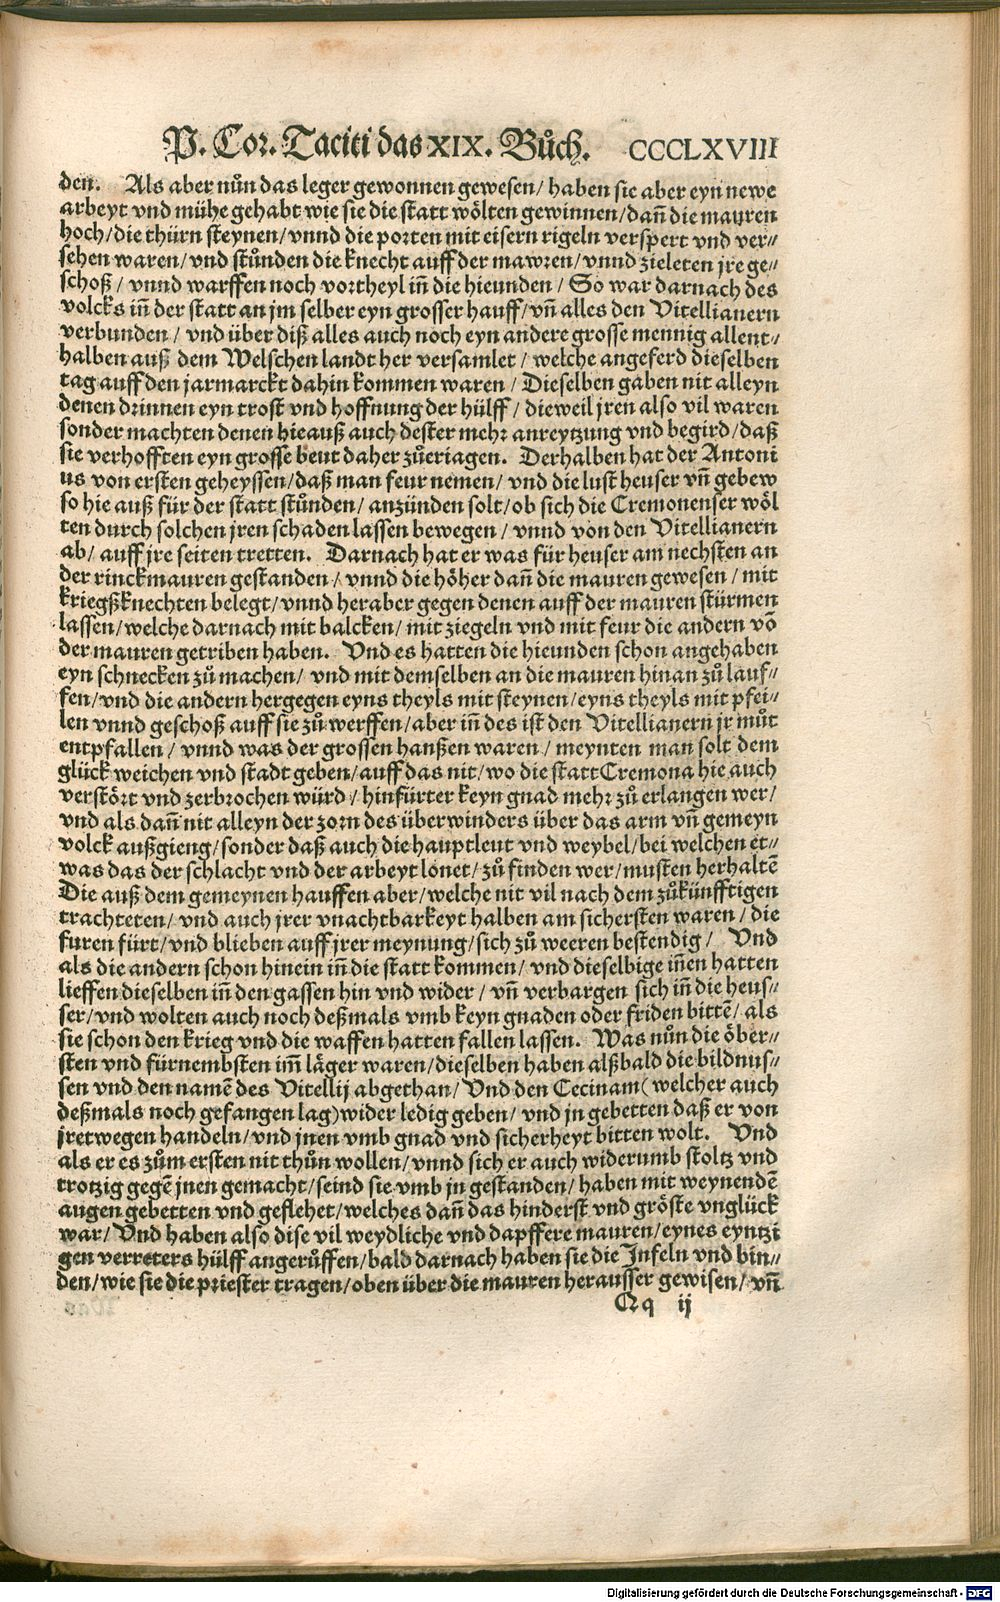 P. Cor. Taciti das XIX. Bůch. CCCLXVIII
den. Als aber nůn das leger gewonnen gewesen/ haben sie aber eyn newe
arbeyt vnd mühe gehabt wie sie die statt wölten gewinnen/ dañ die mauren
hoch/ die thürn steynen/ vnnd die porten mit eisern rigeln verspert vnd ver⸗
sehen waren/ vnd stůnden die knecht auff der mawren/ vnnd zieleten jre ge⸗
schoß/ vnnd warffen noch vortheyl iñ die hieunden/ So war darnach des
volcks iñ der statt an jm selber eyn grosser hauff/ vñ alles den Vitellianern
verbunden/ vnd über diß alles auch noch eyn andere grosse mennig allent⸗
halben auß dem Welschen landt her versamlet/ welche angeferd dieselben
tag auff den jarmarckt dahin kommen waren/ Dieselben gaben nit alleyn
denen drinnen eyn trost vnd hoffnung der hülff/ dieweil jren also vil waren
sonder machten denen hieauß auch dester mehr anreytzung vnd begird/ daß
sie verhofften eyn grosse beut daher zůeriagen. Derhalben hat der Antoni
us von ersten geheyssen/ daß man feur nemen/ vnd die lust heuser vñ gebew
so hie auß für der statt stůnden/ anzünden solt/ ob sich die Cremonenser wöl
ten durch solchen jren schaden lassen bewegen/ vnnd von den Vitellianern
ab/ auff jre seiten tretten. Darnach hat er was für heuser am nechsten an
der rinckmauren gestanden/ vnnd die höher dañ die mauren gewesen/ mit
kriegßknechten belegt/ vnnd heraber gegen denen auff der mauren stürmen
lassen/ welche darnach mit balcken/ mit ziegeln vnd mit feur die andern võ
der mauren getriben haben. Vnd es hatten die hieunden schon angehaben
eyn schnecken zů machen/ vnd mit demselben an die mauren hinan zů lauf⸗
fen/ vnd die andern hergegen eyns theyls mit steynen/ eyns theyls mit pfei⸗
len vnnd geschoß auff sie zů werffen/ aber iñ des ist den Vitellianern jr můt
entpfallen/ vnnd was der grossen hanßen waren/ meynten man solt dem
glück weichen vnd stadt geben/ auff das nit/ wo die statt Cremona hie auch
verstört vnd zerbrochen würd/ hinfürter keyn gnad mehr zů erlangen wer/
vnd als dañ nit alleyn der zorn des überwinders über das arm vñ gemeyn
volck außgieng/ sonder daß auch die hauptleut vnd weybel/ bei welchen et⸗
was das der schlacht vnd der arbeyt lonet/ zů finden wer/ musten herhaltẽ
Die auß dem gemeynen hauffen aber/ welche nit vil nach dem zůkünfftigen
trachteten/ vnd auch jrer vnachtbarkeyt halben am sichersten waren/ die
furen fürt/ vnd blieben auff jrer meynung/ sich zů weeren bestendig/ Vnd
als die andern schon hinein iñ die statt kommen/ vnd dieselbige iñen hatten
lieffen dieselben iñ den gassen hin vnd wider/ vñ verbargen sich iñ die heus⸗
ser/ vnd wolten auch noch deßmals vmb keyn gnaden oder friden bittẽ/ als
sie schon den krieg vnd die waffen hatten fallen lassen. Was nůn die öber⸗
sten vnd fürnembsten im̃ läger waren/ dieselben haben alßbald die bildnus⸗
sen vnd den namẽ des Vitellij abgethan/ Vnd den Cecinam (welcher auch
deßmals noch gefangen lag) wider ledig geben/ vnd jn gebetten daß er von
jretwegen handeln/ vnd jnen vmb gnad vnd sicherheyt bitten wolt. Vnd
als er es zům ersten nit thůn wollen/ vnnd sich er auch widerumb stoltz vnd
trotzig gegẽ jnen gemacht/ seind sie vmb jn gestanden/ haben mit weynendẽ
augen gebetten vnd geflehet/ welches dañ das hinderst vnd gröste vnglück
war/ Vnd haben also dise vil weydliche vnd dapffere mauren/ eynes eyntzi
gen verreters hülff angerůffen/ bald darnach haben sie die Infeln vnd bin⸗
den/ wie sie die priester tragen/ oben über die mauren herausser gewisen/ vñ
Qq ij
Digitalisierung gefördert durch die Deutsche Forschungsgemeinschaft - DFG